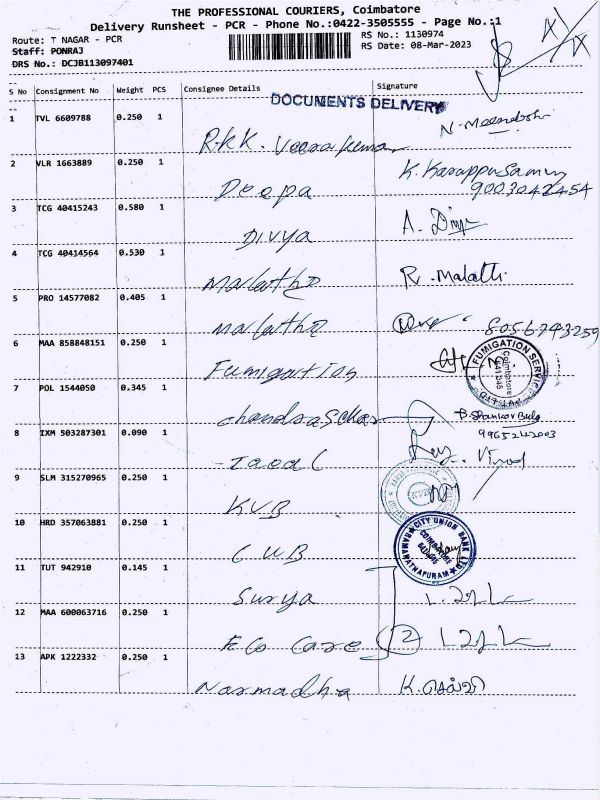 THE PROFESSIONAL COURIERS, Coimbatore
Delivery Runsheet - PCR - Phone No.:0422-3505555 - Page No.:1
Route: T NAGAR - PCR
Staff: PONRAJ
DRS No.: DCJB113097401
RS No.: 1130974
RS Date: 08-Mar-2023
S No Consignment No Weight PCS Consignee Details Signature
DOCUMENTS DELIVERY
1 TVL 6609788 0.250 1 N. Meenakshi
R.K.K. Veerakumar
2 VLR 1663889 0.250 1 K. Karappusamy
9003042454
Deepa
3 TCG 40415243 0.580 1 A. Divya
Divya
4 TCG 40414564 0.530 1 R. Malathi
Malatha
5 PRO 14577082 0.405 1 8056743259
Malatha
6 MAA 858848151 0.250 1
FUMIGATION SERVICE
Coimbatore
Fumigation
7 POL 1544050 0.345 1
9965242003
Chandrasekar
8 IXM 503287301 0.090 1 Vinod
9 SLM 315270965 0.250 1
KVB
10 HRD 357063881 0.250 1
CITY UNION BANK LTD
COIMBATORE
RAMANATHAPURAM
CUB
11 TUT 942910 0.145 1
Surya
12 MAA 600063716 0.250 1
Eco Care 2
13 APK 1222332 0.250 1
Narmadha